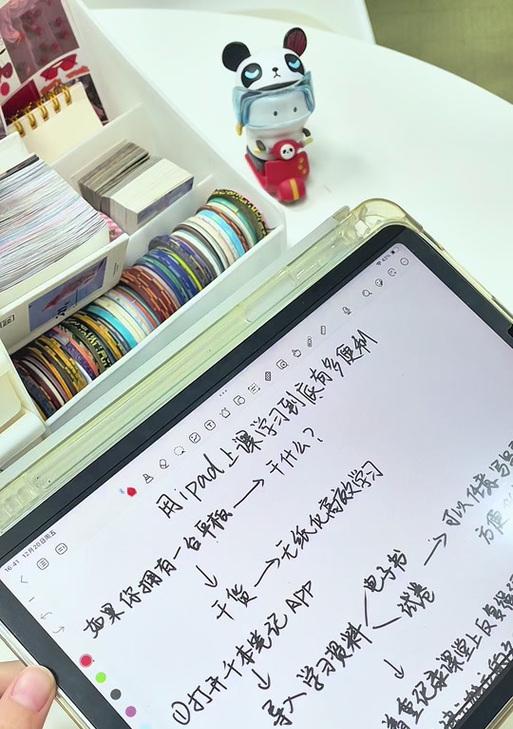 43%
16:41 12月20日周五
用ipad上课学习到底有多便利
如果你拥有一台平板 → 干什么?
↓
干货 → 无纸化高效学习
①打开千本笔记APP
↓
导入学习资料
电子书
试卷
→ 可以任意勾
方便
↓
着重记录课堂上反复强